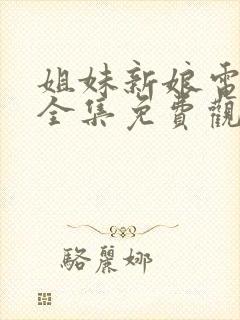 姐妹新娘電
全集免費觀
駱麗娜